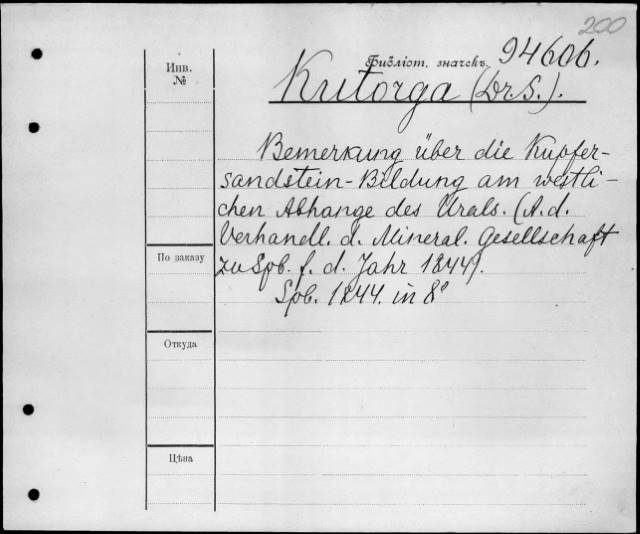 200
Инв.
№
Библіот. значекъ 94606.
Kutorga (Dr S.).
Bemerkung über die Kupfer-
sandstein-Bildung am westli-
chen Abhange des Urals. (A. d.
Verhandl. d. Mineral. Gesellschaft
zu Spb. f. d. Jahr 1844).
Spb. 1844. in 8°
По заказу
Откуда
Цѣна